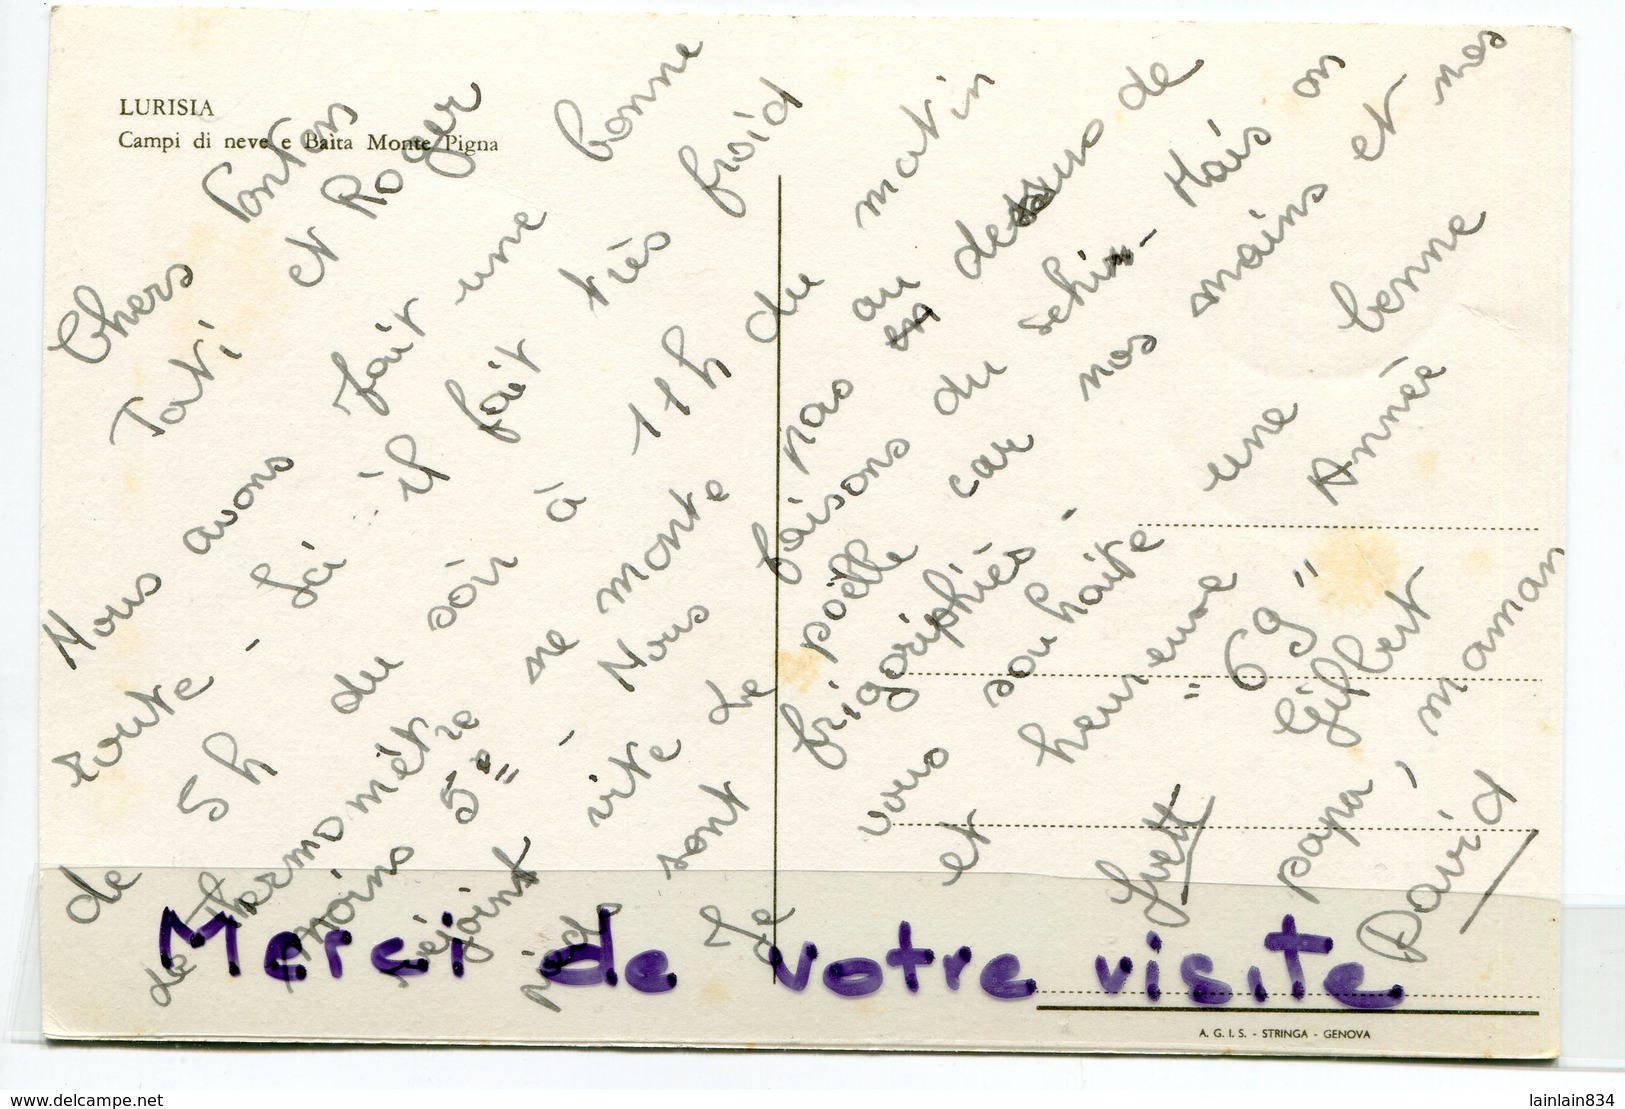 LURISIA
Campi di neve e Baita Monte Pigna
Chers Tonton
Tati et Roger
Nous avons fait une bonne
route - Ici il fait très froid
de 5h du soir à 11h du matin
le thermomètre ne monte pas au dessus de
moins 5°" - Nous faisons du schi - Mais on
rejoint vite le poëlle car nos mains et nos
pieds sont frigoriphiés -
Je vous souhaite une bonne
et heureuse Année
"69"
Yvett Gilbert
papa, maman
David
Merci de votre visite
A. G. I. S. - STRINGA - GENOVA
www.delcampe.net
lainlain834